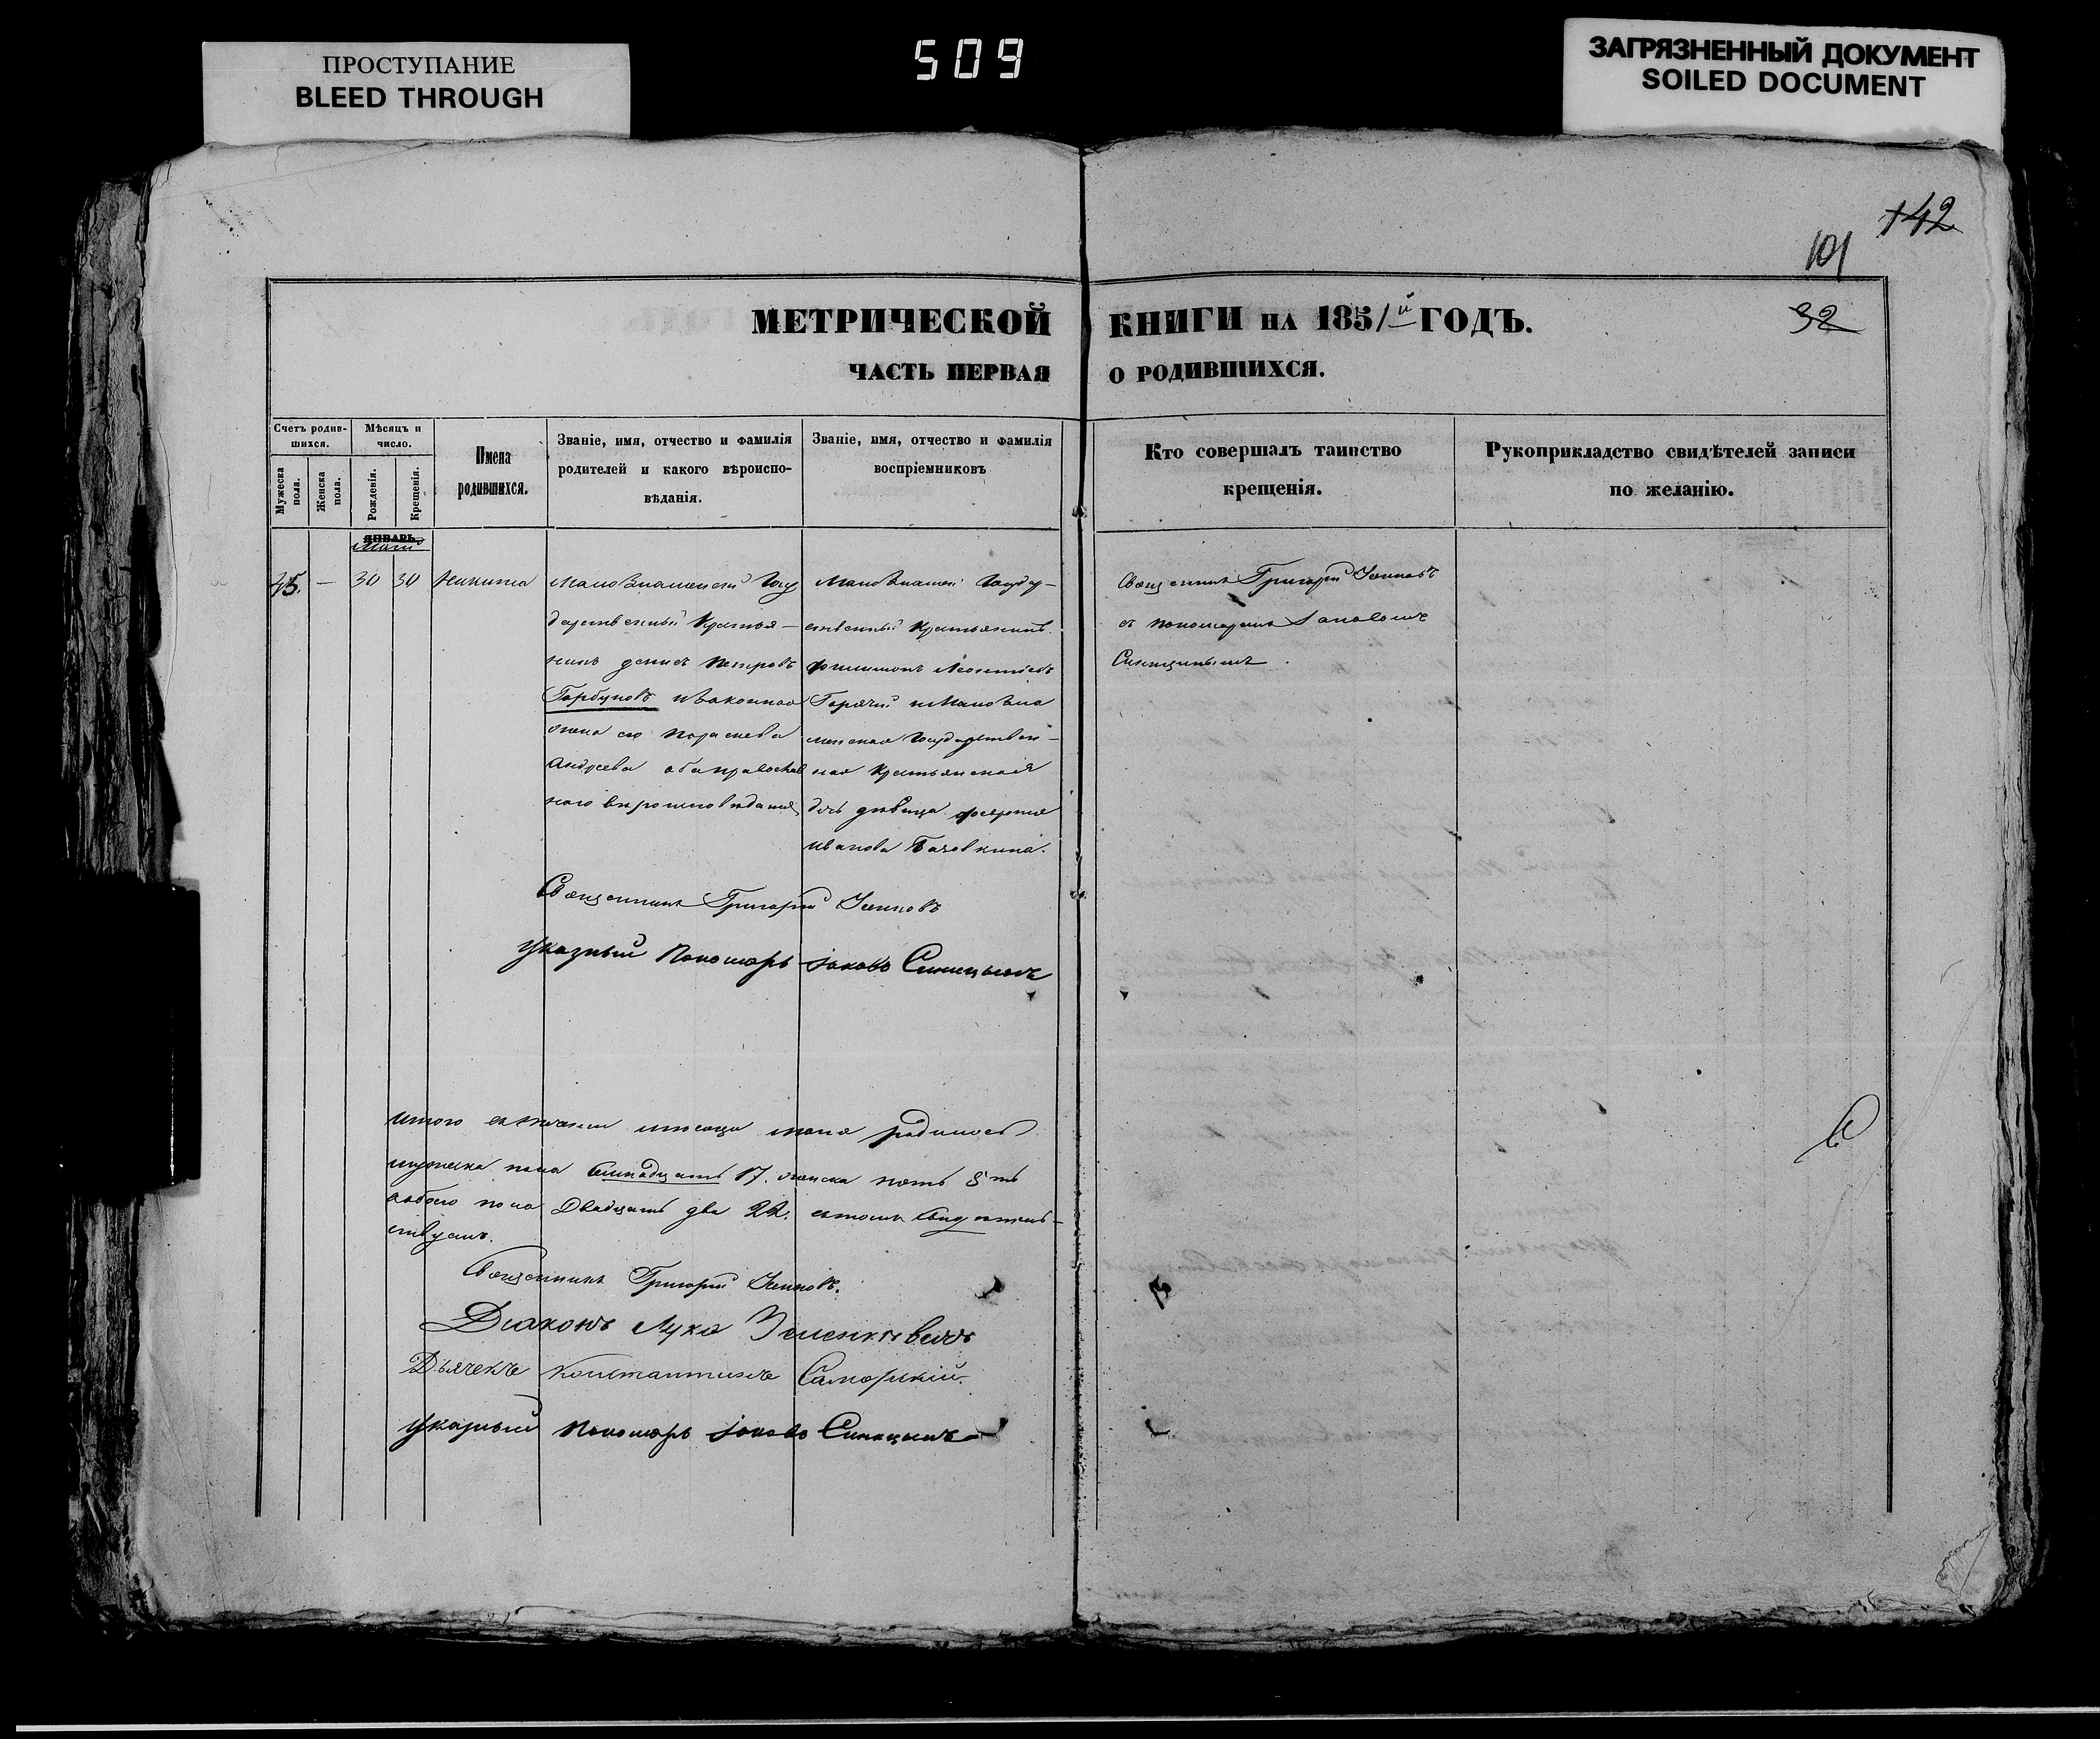 ПРОСТУПАНИЕ
BLEED THROUGH
509
ЗАГРЯЗНЕННЫЙ ДОКУМЕНТ
SOILED DOCUMENT
142
101
32
МЕТРИЧЕСКОЙ КНИГИ НА 1851й ГОДЪ.
ЧАСТЬ ПЕРВАЯ О РОДИВШИХСЯ.
Счетъ родив-
шихся.
Мужеска пола.
Женска пола.
Мѣсяцъ и
число.
Рожденія.
Крещенія.
Имена
родившихся.
Званіе, имя, отчество и фамилія
родителей и какого вѣроиспо-
вѣданія.
Званіе, имя, отчество и фамилія
воспріемниковъ
Кто совершалъ таинство
крещенія.
Рукоприкладство свидѣтелей записи
по желанію.
ЯНВАРЬ.
Маій
45. — 30 30 Никита
Малознаменскій Госу
дарственный Крестья-
нинъ Денисъ Петровъ
Горбуновъ и законная
жена его Параскева
Андреева оба православ
наго вѣроисповѣданія
Малознамен Госуда-
рственный Крестьянинъ
Филимонъ Леонтіевъ
Горячій и Малозна
менская Государствен-
ная Крестьянская
дочь дѣвица
Иванова
Священникъ Григорій
съ пономаремъ Іаковомъ
Синицынымъ.
Священникъ Григорій
Указный Пономарь Іаковъ Синицынъ
Итого въ теченіи мѣсяца маія родилось
мужеска пола семнадцать 17. женска пять 5ть
а обоего пола Двадцать два 22. въ томъ свидѣтель-
ствуемъ.
Священникъ Григорій
Діаконъ Лука
Дьячекъ Константинъ Саморскій.
Указный Пономарь Іаковъ Синицынъ